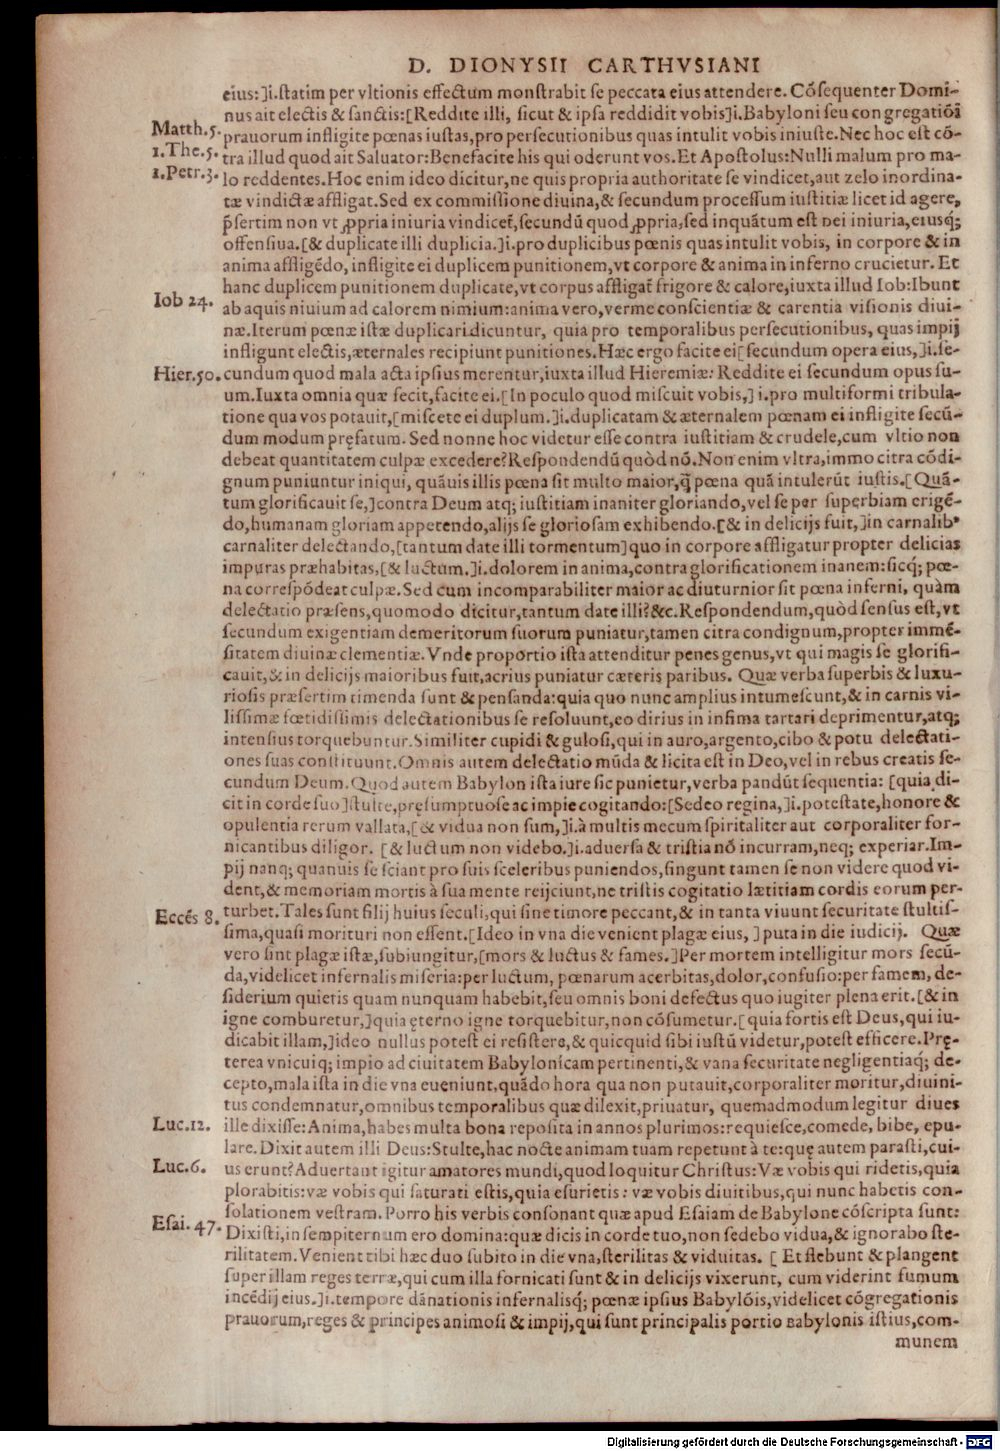 D. DIONYSII CARTHVSIANI
eius:]i.ſtatim per vltionis effectum monſtrabit ſe peccata eius attendere. Cõſequenter Domi-
nus ait electis & ſanctis:[Reddite illi, ſicut & ipſa reddidit vobis]i.Babyloni ſeu congregatiõi
Matth.5. prauorum infligite pœnas iuſtas,pro perſecutionibus quas intulit vobis iniuſte.Nec hoc eſt cõ-
1.The.5. tra illud quod ait Saluator:Benefacite his qui oderunt vos.Et Apoſtolus:Nulli malum pro ma-
1.Petr.3. lo reddentes.Hoc enim ideo dicitur,ne quis propria authoritate ſe vindicet,aut zelo inordina-
tæ vindictæ affligat.Sed ex commiſſione diuina,& ſecundum proceſſum iuſtitiæ licet id agere,
p̃ſertim non vt ꝓpria iniuria vindicet̃,ſecundũ quod ꝓpria,ſed inquãtum eſt Dei iniuria,eiusq́;
offenſiua.[& duplicate illi duplicia.]i.pro duplicibus pœnis quas intulit vobis, in corpore & in
anima affligẽdo, infligite ei duplicem punitionem,vt corpore & anima in inferno crucietur. Et
hanc duplicem punitionem duplicate,vt corpus affligat̃ frigore & calore,iuxta illud Iob:Ibunt
Iob 24. ab aquis niuium ad calorem nimium:anima vero,verme conſcientiæ & carentia viſionis diui-
næ.Iterum pœnæ iſtæ duplicari dicuntur, quia pro temporalibus perſecutionibus, quas impij
infligunt electis,æternales recipiunt punitiones.Hæc ergo facite ei[ſecundum opera eius,]i.ſe-
Hier.50. cundum quod mala acta ipſius merentur,iuxta illud Hieremiæ: Reddite ei ſecundum opus ſu-
um.Iuxta omnia quæ fecit,facite ei.[In poculo quod miſcuit vobis,] i.pro multiformi tribula-
tione qua vos potauit,[miſcete ei duplum.]i.duplicatam & æternalem pœnam ei infligite ſecũ-
dum modum pręfatum. Sed nonne hoc videtur eſſe contra iuſtitiam & crudele,cum vltio non
debeat quantitatem culpæ excedere?Reſpondendũ quòd nõ.Non enim vltra,immo citra cõdi-
gnum puniuntur iniqui, quãuis illis pœna ſit multo maior,q̃ pœna quã intulerũt iuſtis.[Quã-
tum glorificauit ſe,]contra Deum atq; iuſtitiam inaniter gloriando,vel ſe per ſuperbiam erigẽ-
do,humanam gloriam appetendo,alijs ſe glorioſam exhibendo.[& in delicijs fuit,]in carnalibꝰ
carnaliter delectando,[tantum date illi tormentum]quo in corpore affligatur propter delicias
impuras præhabitas,[& luctum.]i.dolorem in anima,contra glorificationem inanem:ſicq́; pœ-
na correſpõdeat culpæ. Sed cum incomparabiliter maior ac diuturnior ſit pœna inferni, quàm
delectatio præſens,quomodo dicitur,tantum date illi?&c.Reſpondendum,quòd ſenſus eſt,vt
ſecundum exigentiam demeritorum ſuorum puniatur,tamen citra condignum,propter immẽ-
ſitatem diuinæ clementiæ. Vnde proportio iſta attenditur penes genus,vt qui magis ſe glorifi-
cauit,& in delicijs maioribus fuit,acrius puniatur cæteris paribus. Quæ verba ſuperbis & luxu-
rioſis præſertim timenda ſunt & penſanda:quia quo nunc amplius intumeſcunt,& in carnis vi-
liſſimæ fœtidiſſimis delectationibus ſe reſoluunt,eo dirius in infima tartari deprimentur,atq;
intenſius torquebuntur.Similiter cupidi & guloſi,qui in auro,argento,cibo & potu delectati-
ones ſuas conſtituunt.Omnis autem delectatio mũda & licita eſt in Deo,vel in rebus creatis ſe-
cundum Deum. Quod autem Babylon iſta iure ſic punietur,verba pandũt ſequentia: [quia di-
cit in corde ſuo]ſtulte,pręſumptuoſe ac impie cogitando:[Sedeo regina,]i.poteſtate,honore &
opulentia rerum vallata,[& vidua non ſum,]i.à multis mecum ſpiritaliter aut corporaliter for-
nicantibus diligor. [& luctum non videbo.]i.aduerſa & triſtia nõ incurram,neq; experiar.Im-
pij nanq; quamuis ſe ſciant pro ſuis ſceleribus puniendos,fingunt tamen ſe non videre quod vi-
dent,& memoriam mortis à ſua mente reijciunt,ne triſtis cogitatio lætitiam cordis eorum per-
Eccẽs 8. turbet.Tales ſunt filij huius ſeculi,qui ſine timore peccant,& in tanta viuunt ſecuritate ſtultiſ-
ſima,quaſi morituri non eſſent.[Ideo in vna die venient plagæ eius, ]puta in die iudicij. Quæ
vero ſint plagæ iſtæ,ſubiungitur,[mors & luctus & fames.]Per mortem intelligitur mors ſecũ-
da,videlicet infernalis miſeria:per luctum, pœnarum acerbitas,dolor,confuſio:per famem, de-
ſiderium quietis quam nunquam habebit,ſeu omnis boni defectus quo iugiter plena erit.[& in
igne comburetur,]quia ęterno igne torquebitur,non cõſumetur.[quia fortis eſt Deus,qui iu-
dicabit illam,]ideo nullus poteſt ei reſiſtere,& quicquid ſibi iuſtũ videtur,poteſt efficere.Prę-
terea vnicuiq; impio ad ciuitatem Babylonicam pertinenti,& vana ſecuritate negligentiaq́; de-
cepto,mala iſta in die vna eueniunt,quãdo hora qua non putauit,corporaliter moritur,diuini-
tus condemnatur,omnibus temporalibus quæ dilexit,priuatur, quemadmodum legitur diues
Luc.12. ille dixiſſe:Anima,habes multa bona repoſita in annos plurimos:requieſce,comede, bibe, epu-
lare.Dixit autem illi Deus:Stulte,hac nocte animam tuam repetunt à te:quę autem paraſti,cui-
Luc.6. us erunt?Aduertant igitur amatores mundi,quod loquitur Chriſtus:Væ vobis qui ridetis,quia
plorabitis:væ vobis qui ſaturati eſtis,quia eſurietis: væ vobis diuitibus,qui nunc habetis con-
ſolationem veſtram. Porro his verbis conſonant quæ apud Eſaiam de Babylone cõſcripta ſunt:
Eſai. 47. Dixiſti,in ſempiternum ero domina:quæ dicis in corde tuo,non ſedebo vidua,& ignorabo ſte-
rilitatem.Venient tibi hæc duo ſubito in die vna,ſterilitas & viduitas. [Et flebunt & plangent
ſuper illam reges terræ,qui cum illa fornicati ſunt & in delicijs vixerunt, cum viderint fumum
incẽdij eius.]i.tempore dãnationis infernalisq́; pœnæ ipſius Babylõis,videlicet cõgregationis
prauorum,reges & principes animoſi & impij,qui ſunt principalis portio Babylonis iſtius,com-
munem
Digitalisierung gefördert durch die Deutsche Forschungsgemeinschaft - DFG